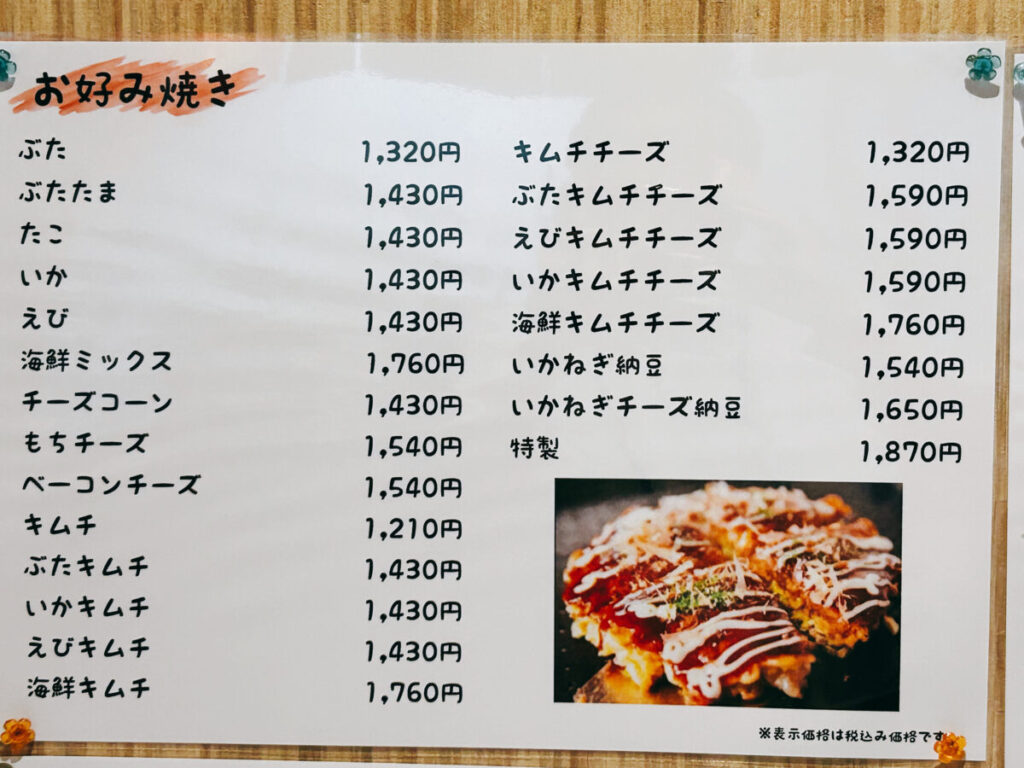 お好み焼き
ぶた 1,320円
ぶたたま 1,430円
たこ 1,430円
いか 1,430円
えび 1,430円
海鮮ミックス 1,760円
チーズコーン 1,430円
もちチーズ 1,540円
ベーコンチーズ 1,540円
キムチ 1,210円
ぶたキムチ 1,430円
いかキムチ 1,430円
えびキムチ 1,430円
海鮮キムチ 1,760円
キムチチーズ 1,320円
ぶたキムチチーズ 1,590円
えびキムチチーズ 1,590円
いかキムチチーズ 1,590円
海鮮キムチチーズ 1,760円
いかねぎ納豆 1,540円
いかねぎチーズ納豆 1,650円
特製 1,870円
※表示価格は税込み価格です